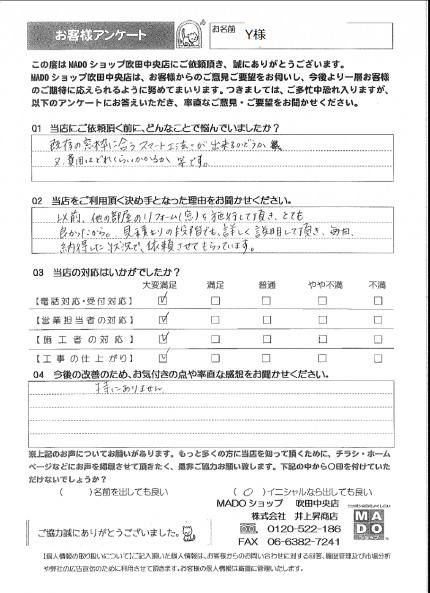 お客様アンケート
お名前 Y様
この度はMADOショップ吹田中央店にご依頼頂き、誠にありがとうございます。
MADOショップ吹田中央店は、お客様からのご意見ご要望をお伺いし、今後より一層お客様
のご期待に応えられるように努めてまいります。つきましては、ご多忙中恐れ入りますが、
以下のアンケートにお答えいただき、率直なご意見・ご要望をお聞かせください。
Q1 当店にご依頼頂く前に、どんなことで悩んでいましたか？
既存の窓枠に合うスマート工法が出来るかどうか
又、費用はどれくらいかかるか 等です。
Q2 当店をご利用頂く決め手となった理由をお聞かせください。
以前、他の部屋のリフォーム(窓)を施行して頂き、とても
良かったから。見積もりの段階でも、詳しく説明して頂き、毎回、
納得した状況で、依頼させてもらっています。
Q3 当店の対応はいかがでしたか？
大変満足 満足 普通 やや不満 不満
【電話対応・受付対応】
【営業担当者の対応】
【施工者の対応】
【工事の仕上がり】
Q4 今後の改善のため、お気付きの点や率直な感想をお聞かせください。
特にありません
※上記のお声についてお願いがあります。もっと多くの方に当店を知って頂くために、チラシ・ホーム
ページなどにお声を掲載させて頂きたく、是非ご協力お願い致します。下記の中から〇印を付けていた
だけないでしょうか？
( )名前を出しても良い (〇)イニシャルなら出しても良い
MADOショップ 吹田中央店
株式会社 井上昇商店
0120-522-186
FAX 06-6382-7241
MADO
ショップ
ご協力誠にありがとうございました。
【個人情報の取り扱いについて】ご記入頂いた個人情報は、お客様からのお問い合わせに対する回答、顧客管理及び市場分析
や弊社の広告宣伝のために利用させて頂きます。お客様の個人情報は厳重に管理いたします。